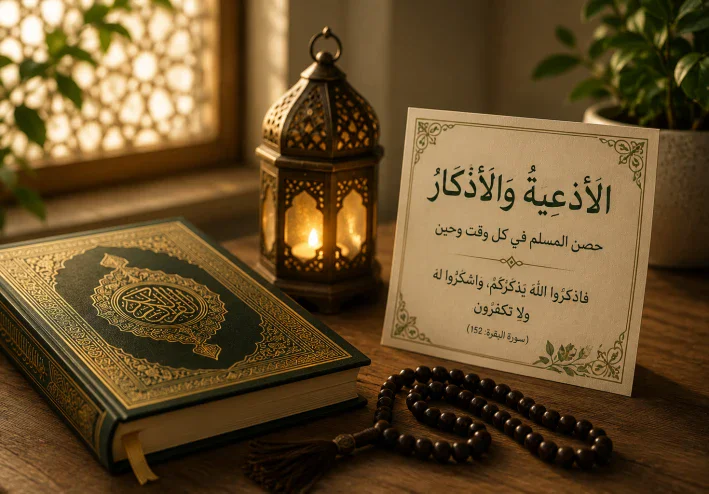 الَأذعِيةُ وَالَأذْكَارُ
حصن المسلم في كل وقت وحين
فاذكرُوا اللهَ يَذْكُرْكُمْ، وَاشكُرُوا لهُ
ولا تكفرُون
(سورة البقرة: 152)